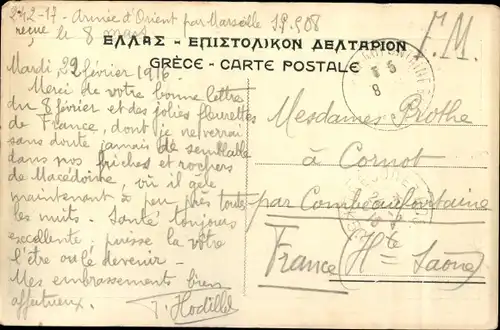 242-17 - Armée d'Orient par Marseille S.P. 508
reçue le 8 mars
F.M.
ΕΛΛΑΣ - ΕΠΙΣΤΟΛΙΚΟΝ ΔΕΛΤΑΡΙΟΝ
GRÈCE - CARTE POSTALE
Mardi, 22 février 1916 -
Merci de votre bonne lettre
du 8 février et des jolies fleurettes
de France, dont je ne verrai
sans doute jamais de semblable
dans nos friches et rochers
de Macédoine, où il gèle
maintenant à peu près toutes
les nuits. Santé toujours
excellente, puisse la vôtre
l'être ou le devenir -
Mes embrassements bien
affectueux.
Mesdames Prothe
à Cornot
par Combeaufontaine
France (Hte Saône)